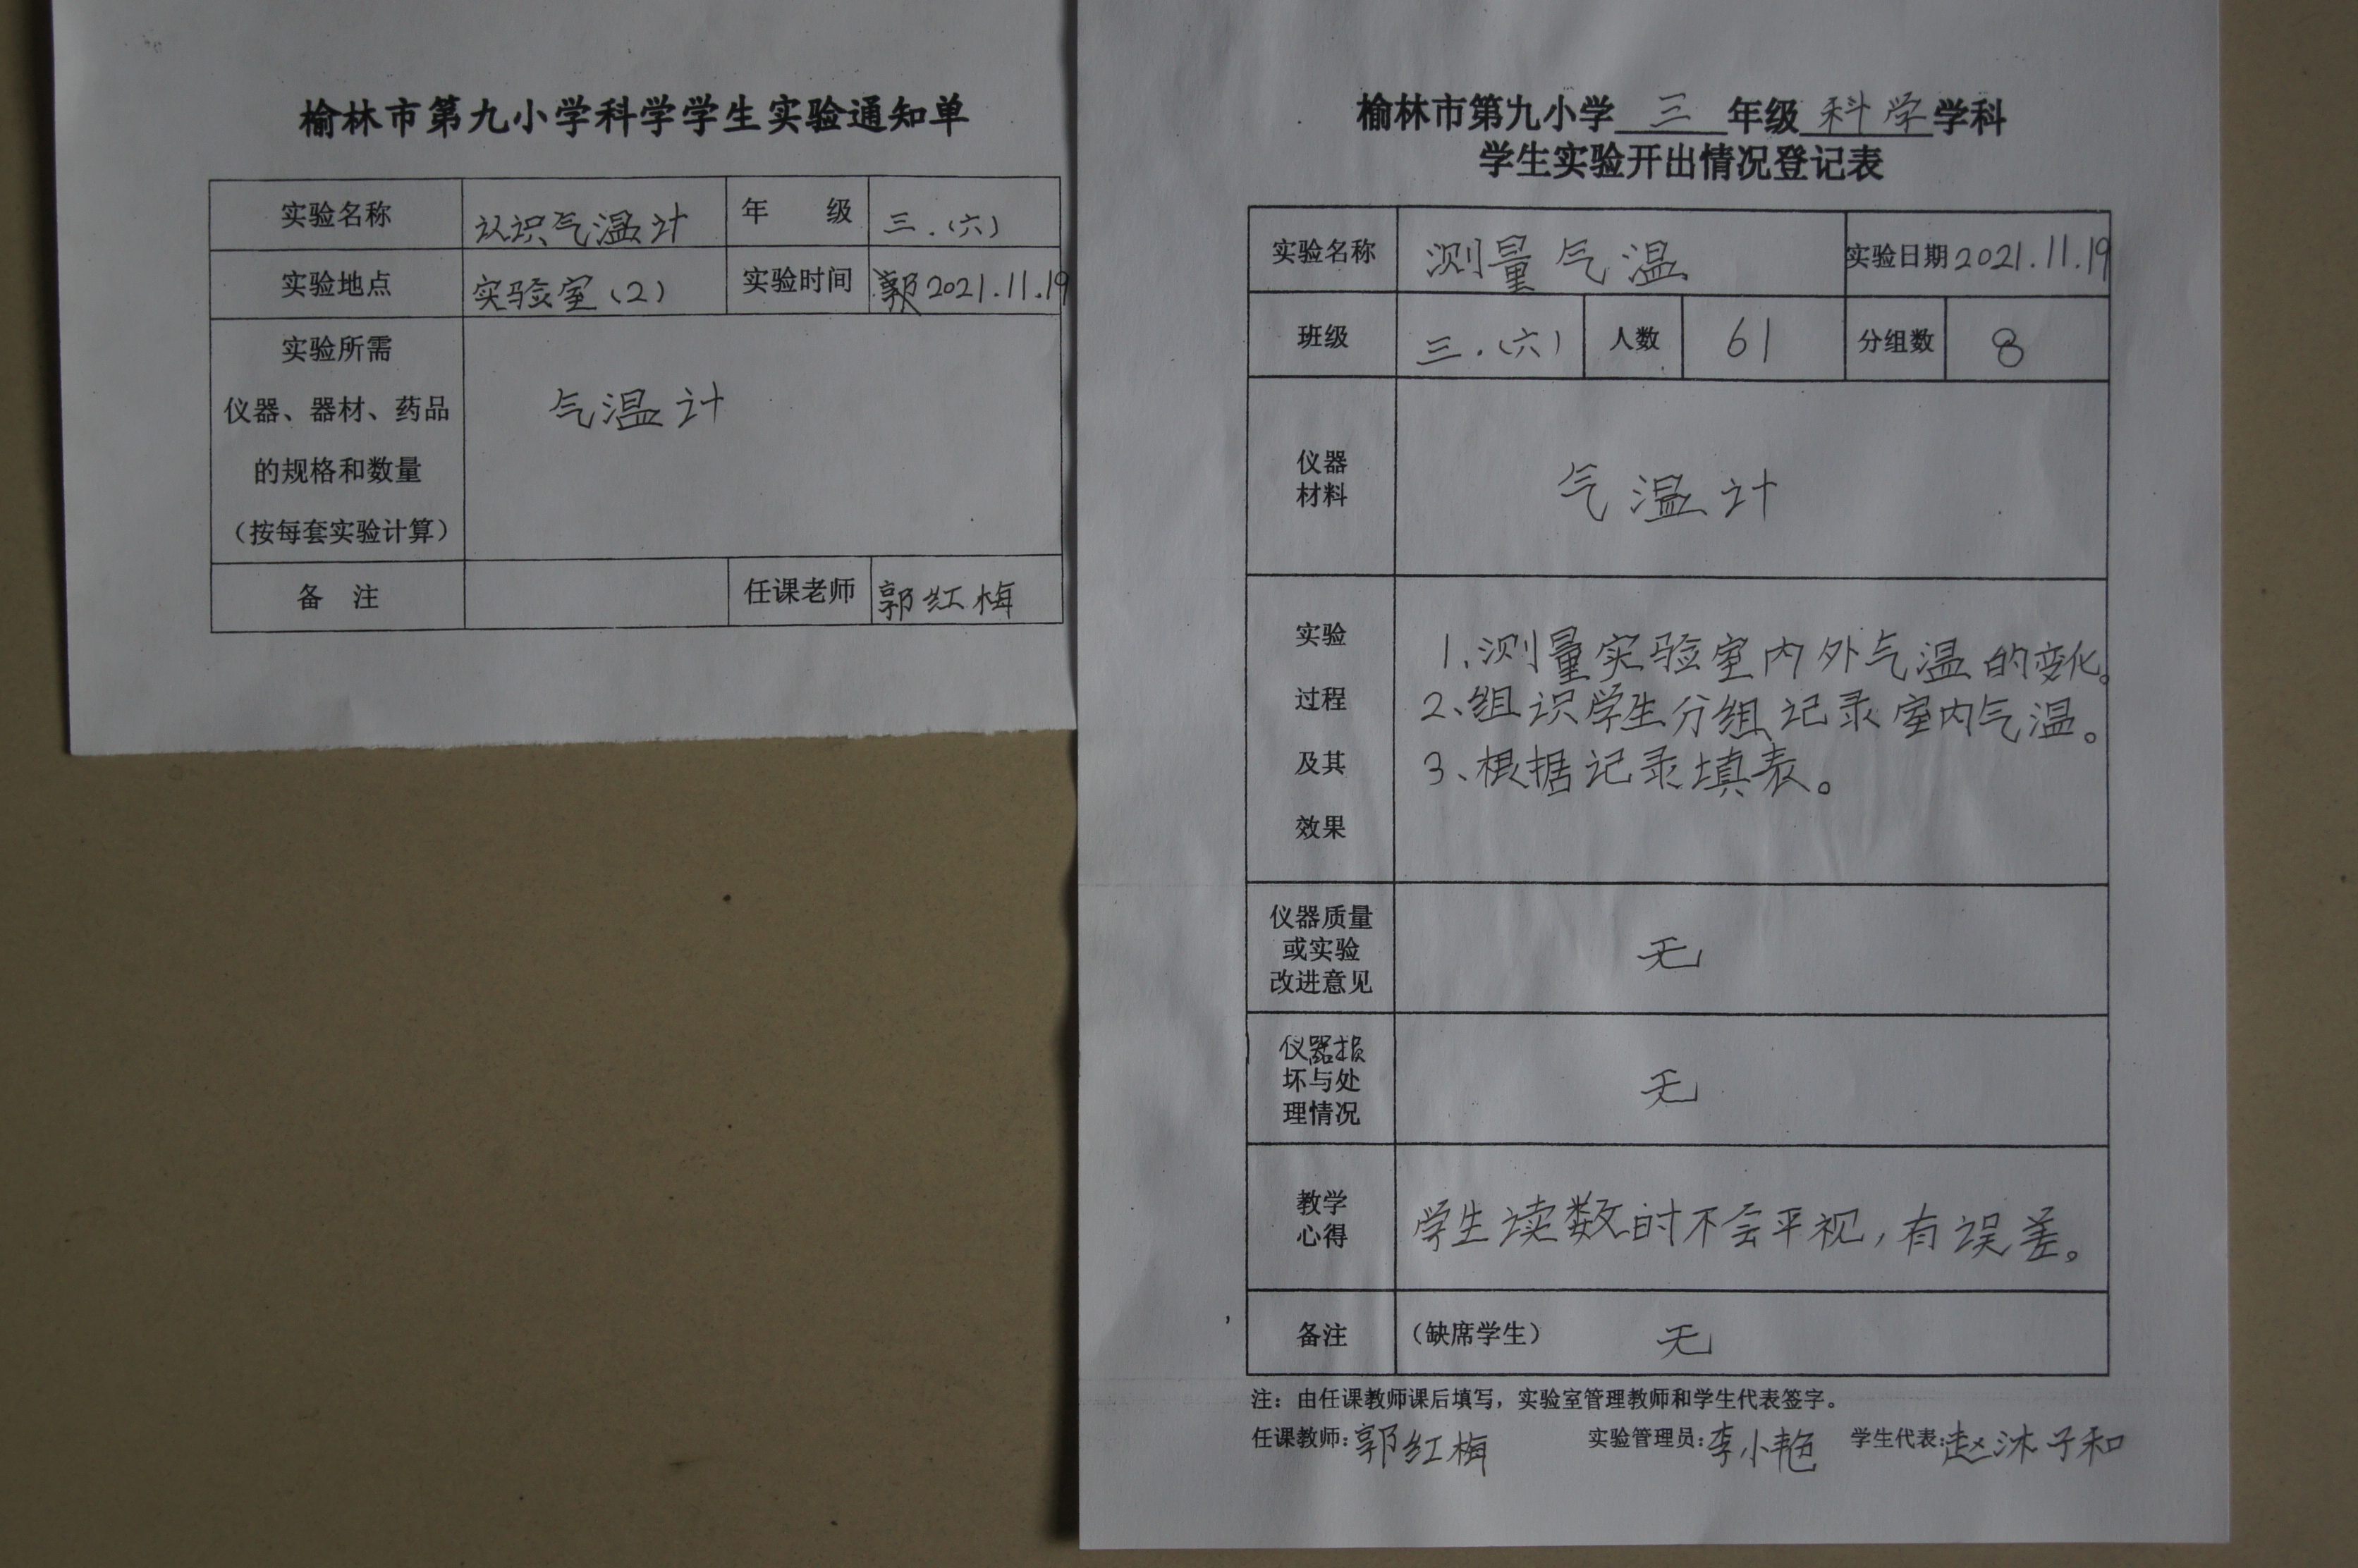 榆林市第九小学科学学生实验通知单
实验名称 认识气温计 年 级 三.(六)
实验地点 实验室(2) 实验时间 2021.11.19
实验所需
仪器、器材、药品
的规格和数量
(按每套实验计算)
气温计
备 注 任课老师 郭红梅
榆林市第九小学 三 年级 科学 学科
学生实验开出情况登记表
实验名称 测量气温 实验日期 2021.11.19
班级 三.(六) 人数 61 分组数 8
仪器
材料
气温计
实验
过程
及其
效果
1、测量实验室内外气温的变化。
2、组识学生分组记录室内气温。
3、根据记录填表。
仪器质量
或实验
改进意见
无
仪器损
坏与处
理情况
无
教学
心得
学生读数时不会平视,有误差。
备注 (缺席学生) 无
注:由任课教师课后填写,实验室管理教师和学生代表签字。
任课教师:郭红梅 实验管理员:李小艳 学生代表:赵沐子和